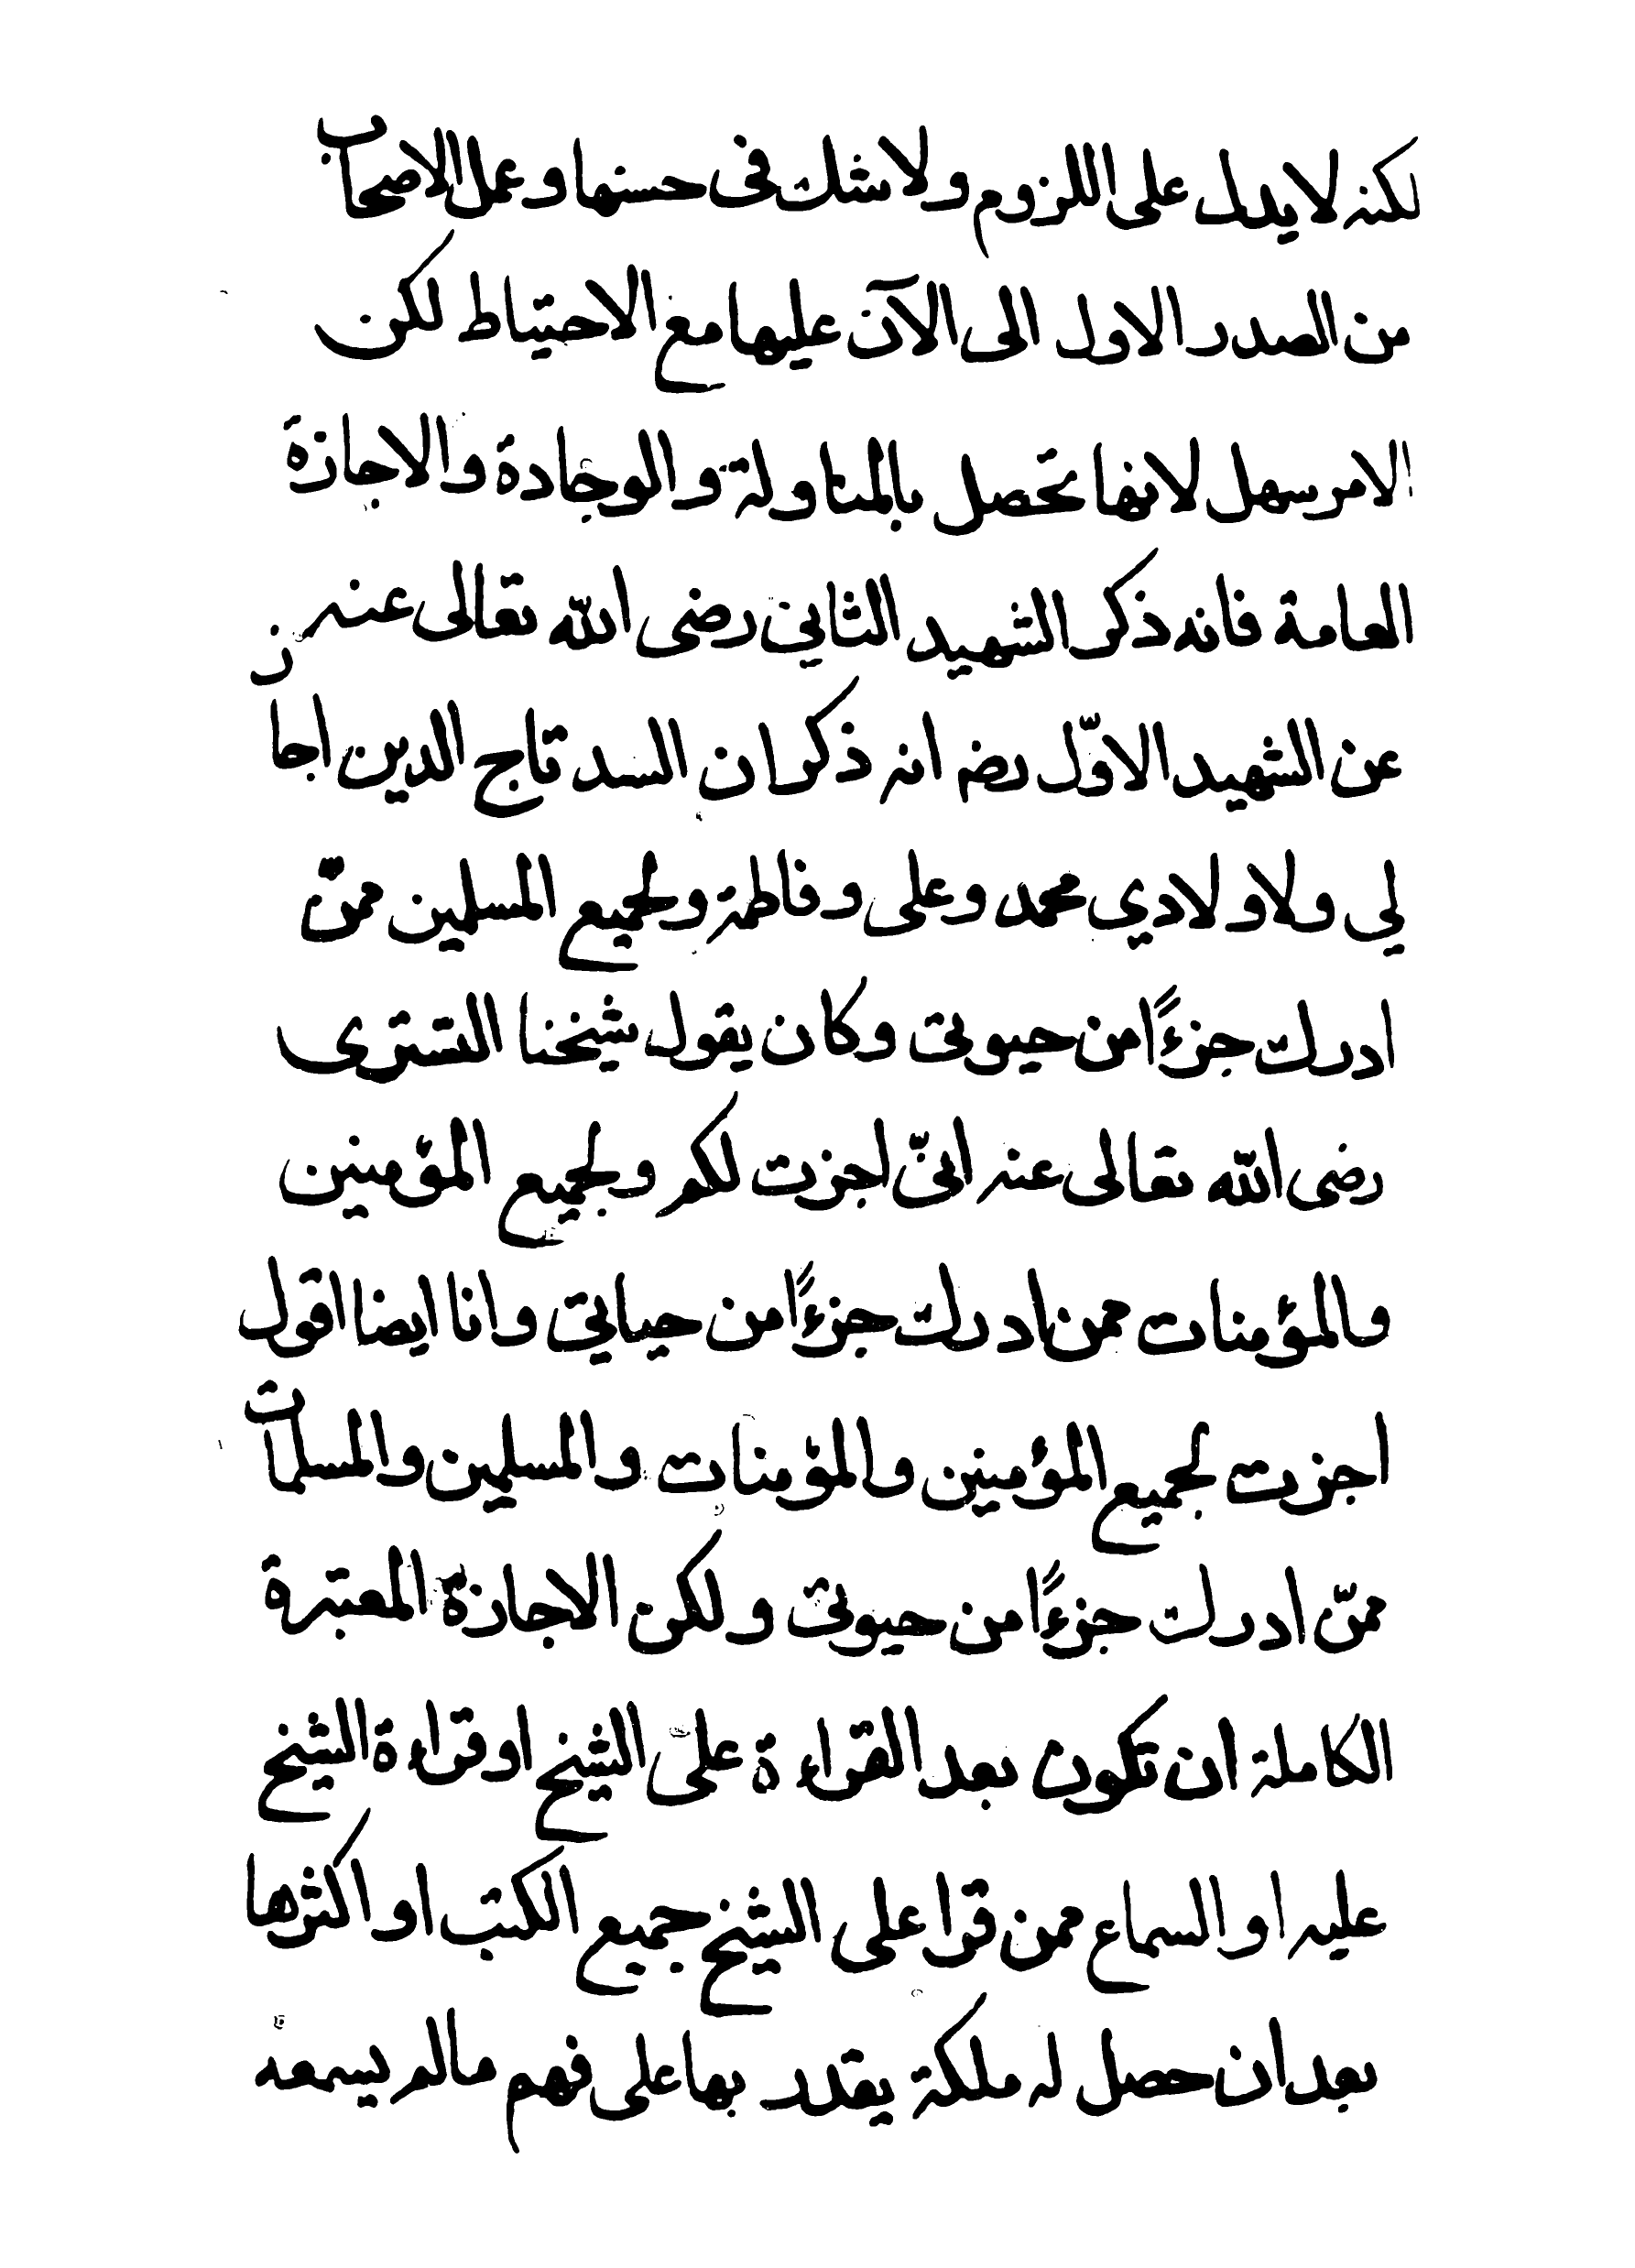 لكنه لا يدل على اللزوم ولا شك فى حسنها وعمل الاصحاب
من الصدر الاول الى الآن عليها مع الاحتياط لكن
الامر سهل لانها تحصل بالمناولة والوجادة والاجازة
العامة فانه ذكر الشهيد الثاني رضى الله تعالى عنه
عن الشهيد الاوّل رضه انه ذكر ان السيد تاج الدين اجاز
لي ولاولادي محمد وعلى وفاطمة ولجميع المسلمين ممنّ
ادرك جزءًا من حيوتى وكان يقول شيخنا التسترى
رضى الله تعالى عنه انىّ اجزت لكم ولجميع المؤمنين
والمؤمنات ممن ادرك جزءًا من حياتي وانا ايضا اقول
اجزت لجميع المؤمنين والمؤمنات والمسلمين والمسلمات
ممنّ ادرك جزءًا من حيوتى ولكن الاجازة المعتبرة
الكاملة ان تكون بعد القراءة على الشيخ او قراءة الشيخ
عليه او السماع ممن قرا على الشيخ جميع الكتب او اكثرها
بعد ان حصل له ملكة يقتدر بها على فهم مالم يسمعه